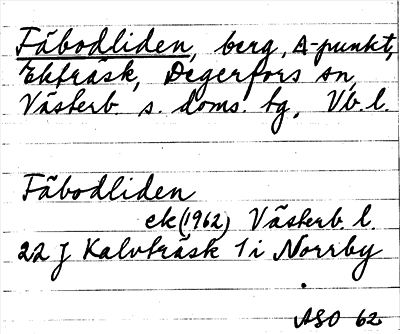 Fäbodliden, berg, A-punkt,
Ekträsk, Degerfors sn,
Västerb. s. doms. tg, Vb. l.
Fäbodliden
ek (1962) Västerb. l.
22 J Kalvträsk 1 i Norrby
ASO 62